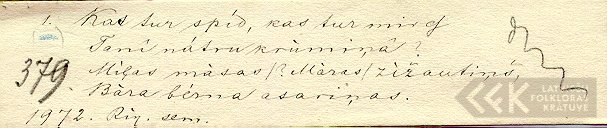 1. Kas tur spīd, kas tur mirdz
Tanī nātru krūmiņā?
379. Mīļas māsas /? Māras/ zīžautiņš,
Bāra bērna asariņas.
1972. Rīg. sem.
LATVIEŠU
FOLKLORAS
KRĀTUVE